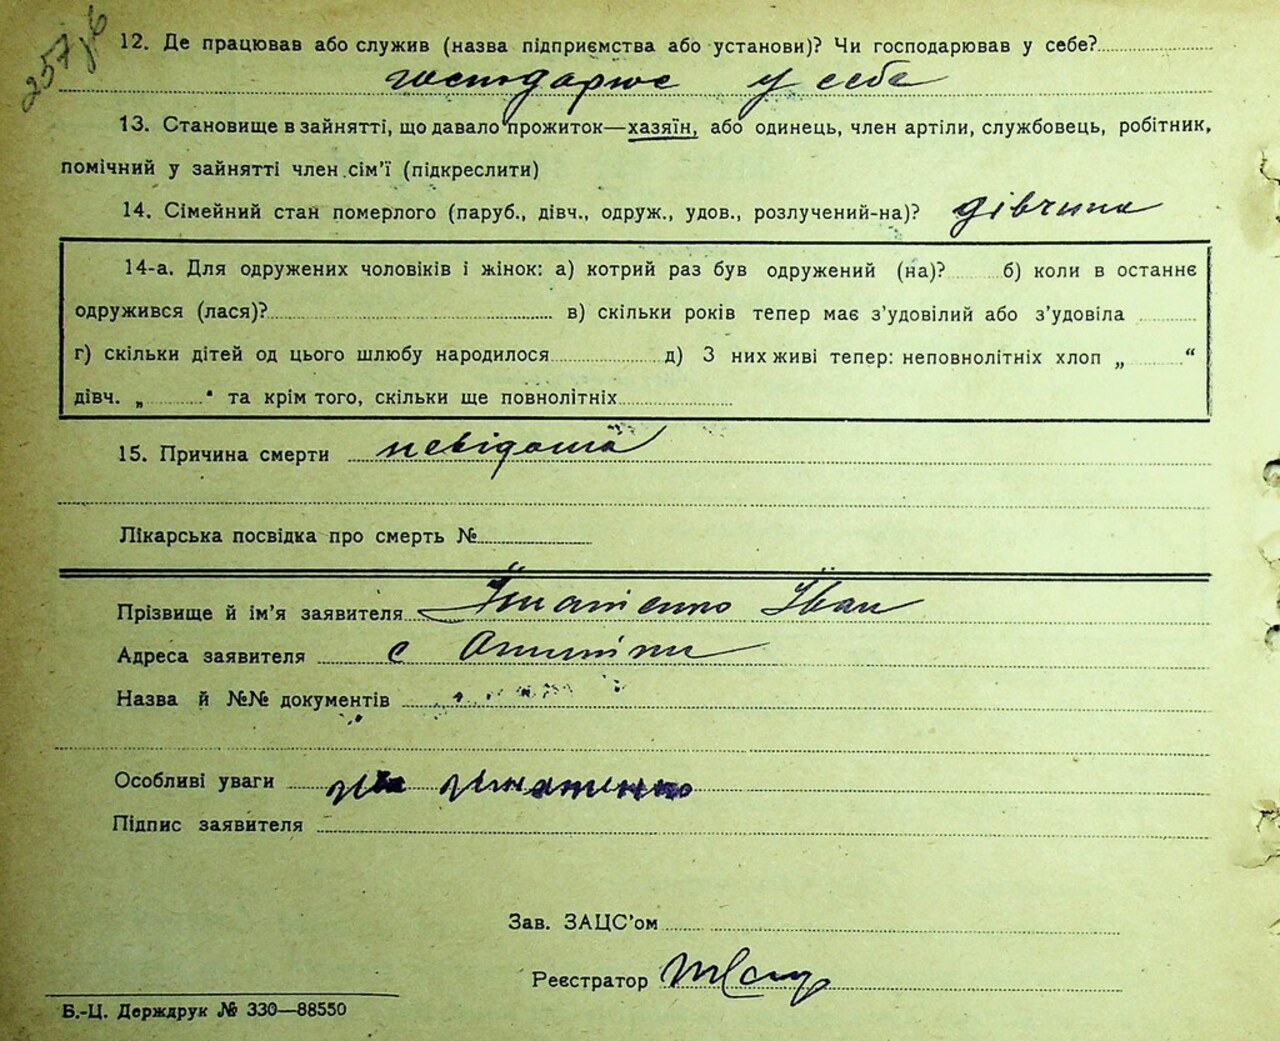 257
12. Де працював або служив (назва підприємства або установи)? Чи господарював у себе?
господарює у себе
13. Становище в зайнятті, що давало прожиток—хазяїн, або одинець, член артіли, службовець, робітник,
помічний у зайнятті член сім'ї (підкреслити)
14. Сімейний стан померлого (паруб., дівч., одруж., удов., розлучений-на)? дівчина
14-а. Для одружених чоловіків і жінок: а) котрий раз був одружений (на)? б) коли в останнє
одружився (лася)? в) скільки років тепер має з'удовілий або з'удовіла
г) скільки дітей од цього шлюбу народилося д) З них живі тепер: неповнолітніх хлоп „ “
дівч. „ “ та крім того, скільки ще повнолітніх
15. Причина смерти невідома
Лікарська посвідка про смерть №
Прізвище й ім'я заявителя Ігнатенко Іван
Адреса заявителя с
Назва й №№ документів
Особливі уваги Ігнатенко
Підпис заявителя
Зав. ЗАЦС'ом
Реєстратор
Б.-Ц. Держдрук № 330—88550